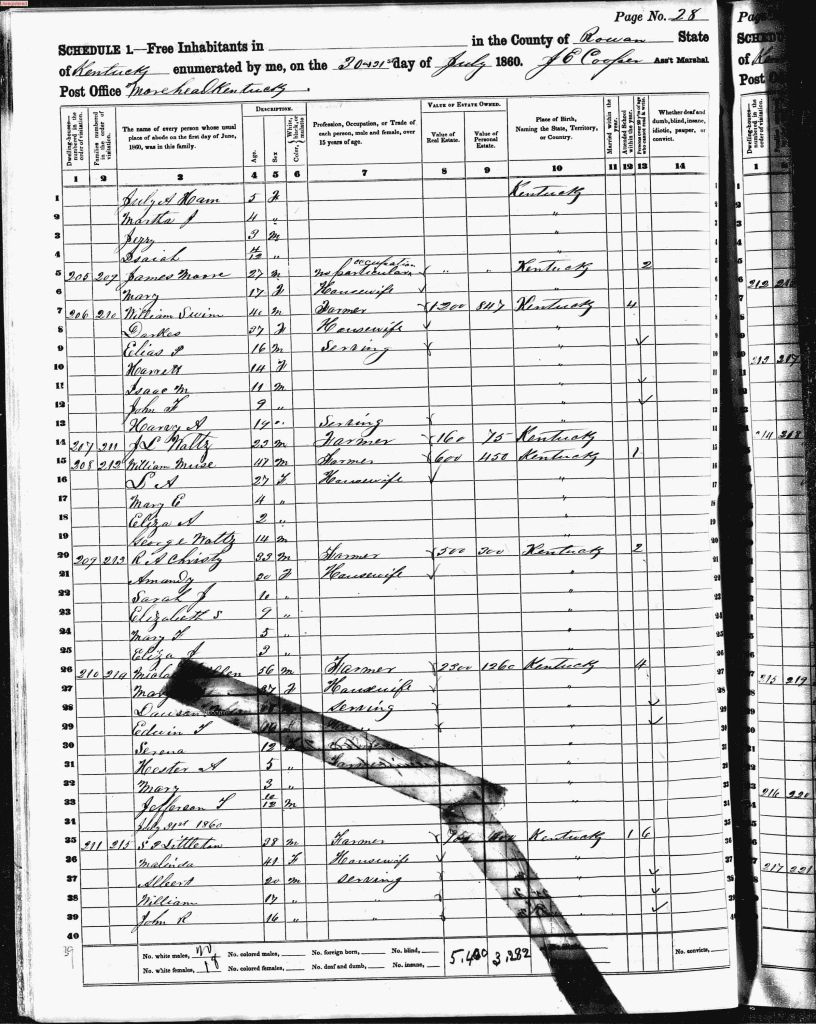 Page No. 28
SCHEDULE 1.—Free Inhabitants in in the County of Rowan State
of Kentucky enumerated by me, on the 20 & 21st day of July 1860. J E Cooper Ass't Marshal
Post Office Morehead Kentucky.
DESCRIPTION. VALUE OF ESTATE OWNED.
Dwelling-houses—numbered in the order of visitation. Families numbered in the order of visitation. The name of every person whose usual place of abode on the first day of June, 1860, was in this family. Age. Sex. Color, White, black, or mulatto. Profession, Occupation, or Trade of each person, male and female, over 15 years of age. Value of Real Estate. Value of Personal Estate. Place of Birth, Naming the State, Territory, or Country. Married within the year. Attended School within the year. Whether deaf and dumb, blind, insane, idiotic, pauper, or convict.
1 2 3 4 5 6 7 8 9 10 11 12 13 14
1 July A Ham 5 F Kentucky
2 Martha J 4 " "
3 Jerry 3 M "
4 Isaiah 4/12 " "
5 205 209 James Moore 27 M No particular occupation " " Kentucky 2
6 Mary 17 F Housewife "
7 206 210 William Swim 40 M Farmer 1200 847 Kentucky 4
8 Darkes 37 F Housewife "
9 Elias P 16 M Serving "
10 Harrett 14 F "
11 Isaac M 11 M "
12 John F 9 " "
13 Harvy A 19 " Serving "
14 207 211 J L Waltz 23 M Farmer 160 75 Kentucky
15 208 212 William Muse 48 M Farmer 600 450 Kentucky 1
16 L A 27 F Housewife "
17 Mary E 4 " "
18 Eliza A 2 " "
19 George Waltz 14 M "
20 209 213 R A Christy 33 M Farmer 500 300 Kentucky 2
21 Amandy 30 F Housewife "
22 Sarah J 10 " "
23 Elizabeth S 9 " "
24 Mary F 5 " "
25 Eliza J 3 " "
26 210 214 56 M Farmer 2300 1260 Kentucky 4
27 Mary 37 F Housewife "
28 Serving "
29 Edwin T "
30 Serena 12 "
31 Hester A 5 " "
32 Mary 3 " "
33 Jefferson T 10/12 M "
34 July 21st 1860
35 211 215 S Littleton 38 M Farmer Kentucky 1 6
36 Malinda 41 F Housewife "
37 Albert 20 M Serving "
38 William 17 " " "
39 John R 16 " " "
40
39 No. white males, 20 No. colored males, No. foreign born, No. blind, 5,460 3,282 No. convicts,
No. white females, 18 No. colored females, No. deaf and dumb, No. insane,